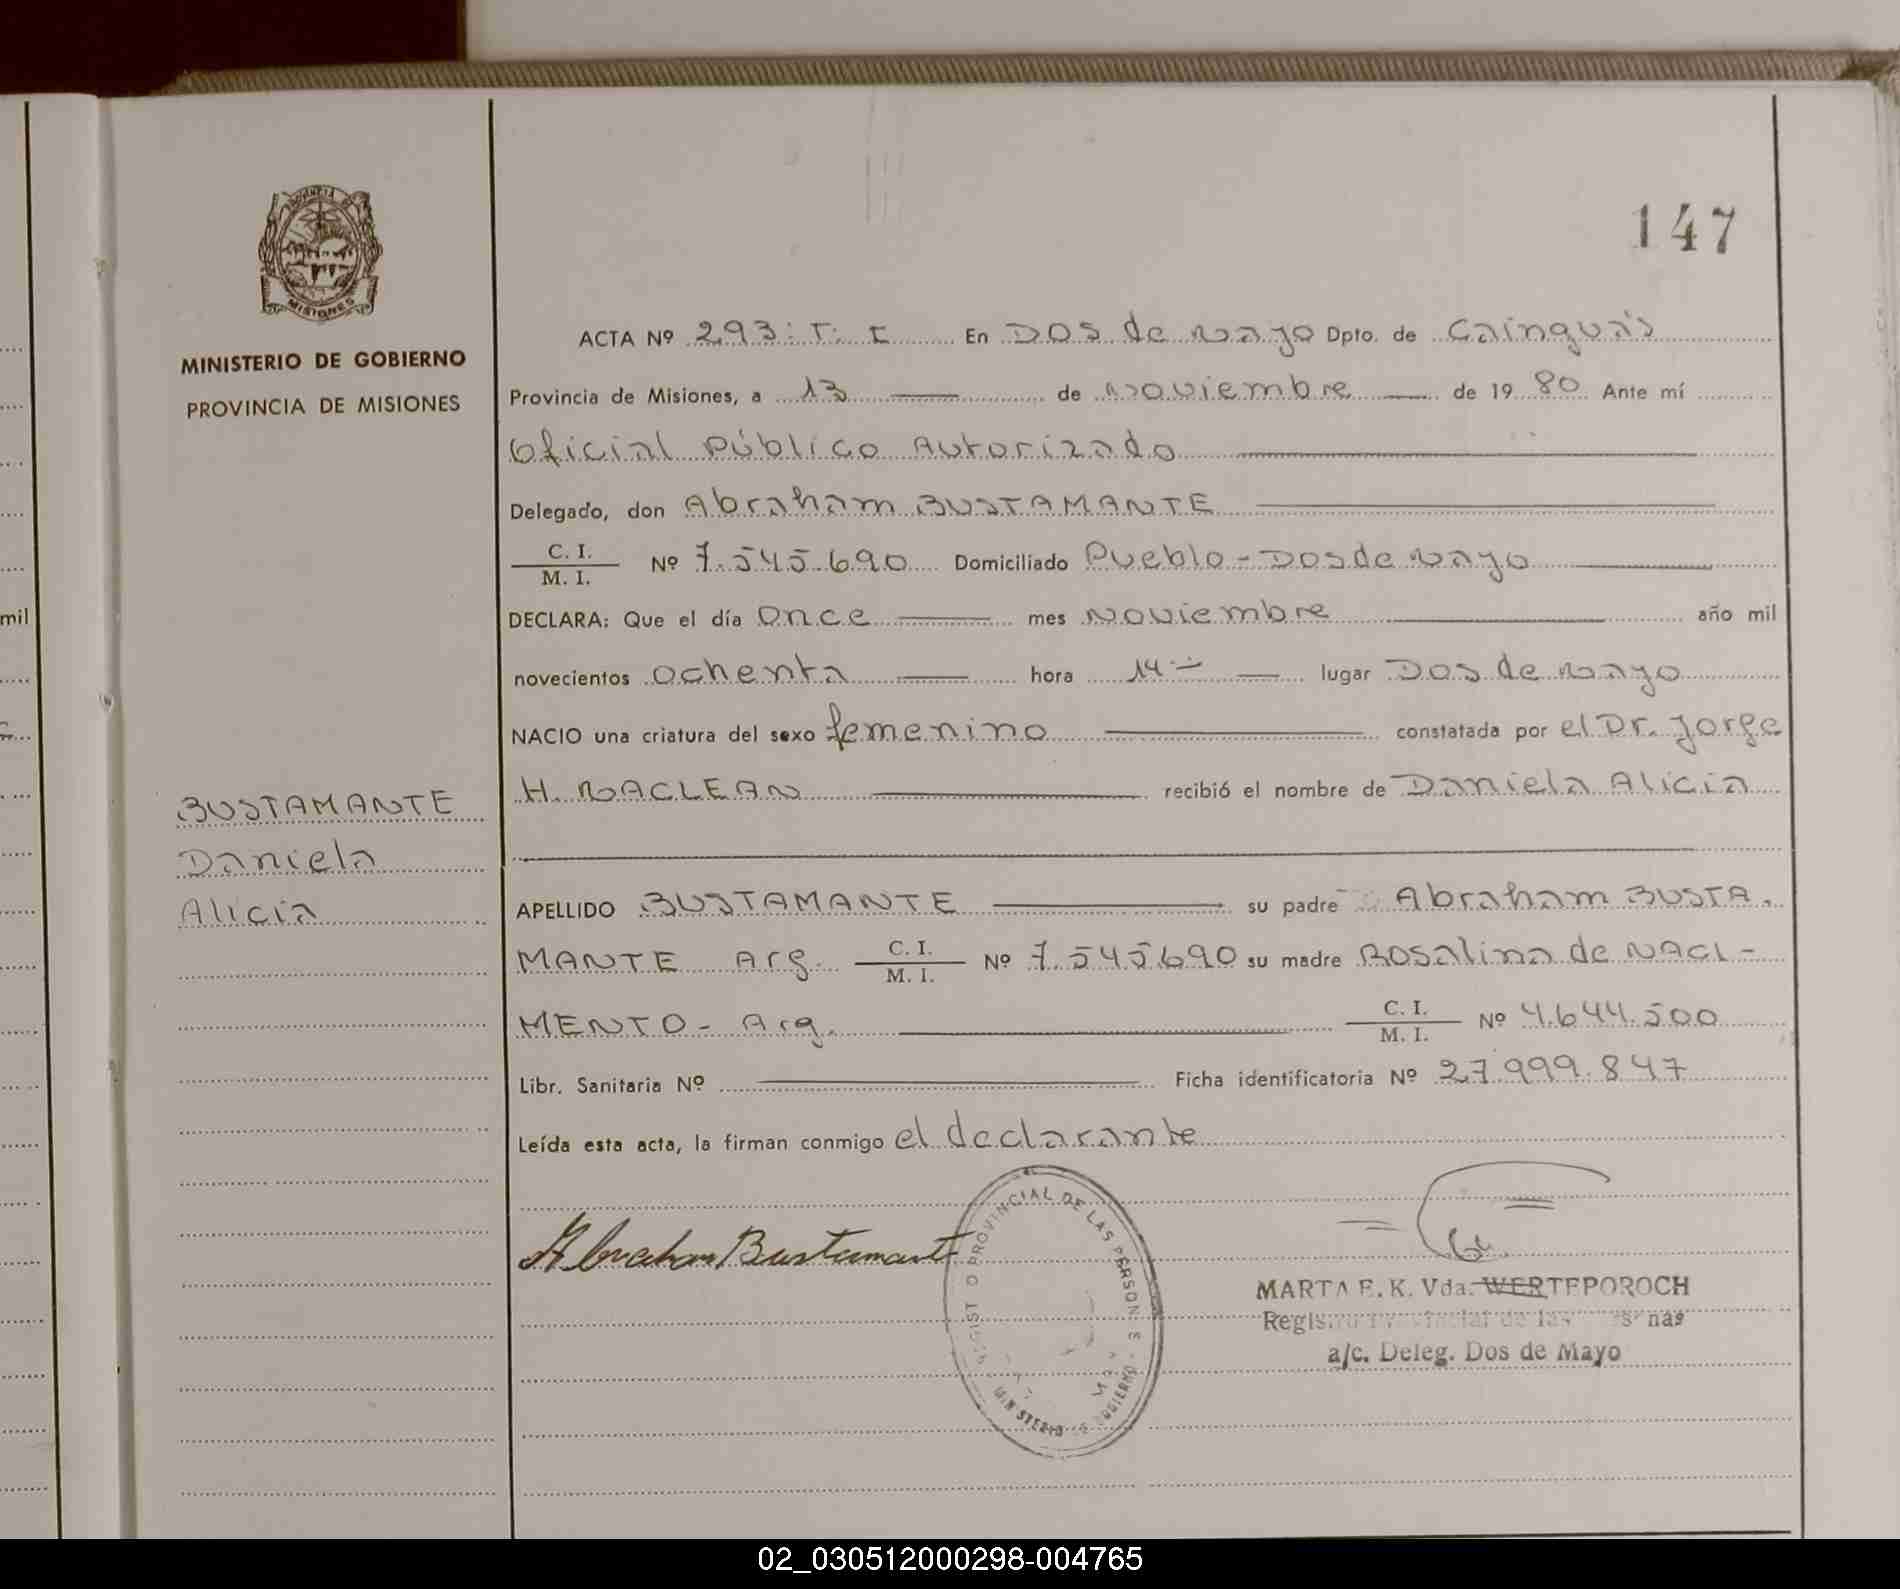 147
MISIONES
MINISTERIO DE GOBIERNO
PROVINCIA DE MISIONES
ACTA Nº 293: T: I En Dos de Mayo Dpto. de Cainguás
Provincia de Misiones, a 13 de Noviembre de 1980 Ante mí
Oficial Público Autorizado
Delegado, don Abraham BUSTAMANTE
C. I.
M. I. Nº 7.545.690 Domiciliado Pueblo - Dos de Mayo
DECLARA: Que el día Once mes Noviembre año mil
novecientos Ochenta hora 14 lugar Dos de Mayo
NACIO una criatura del sexo femenino constatada por el Dr. Jorge
H. MACLEAN recibió el nombre de Daniela Alicia
BUSTAMANTE
Daniela
Alicia
APELLIDO BUSTAMANTE su padre Abraham BUSTA.
MANTE Arg. C. I. M. I. Nº 7.545.690 su madre Rosalina de NACI-
MENTO - Arg. C. I. M. I. Nº 4.644.500
Libr. Sanitaria Nº Ficha identificatoria Nº 27.999.847
Leída esta acta, la firman conmigo el declarante
Abraham Bustamante
PROVINCIAL DE LAS PERSON
MARTA E. K. Vda. WERTEPOROCH
a/c. Deleg. Dos de Mayo
mil
02_030512000298-004765